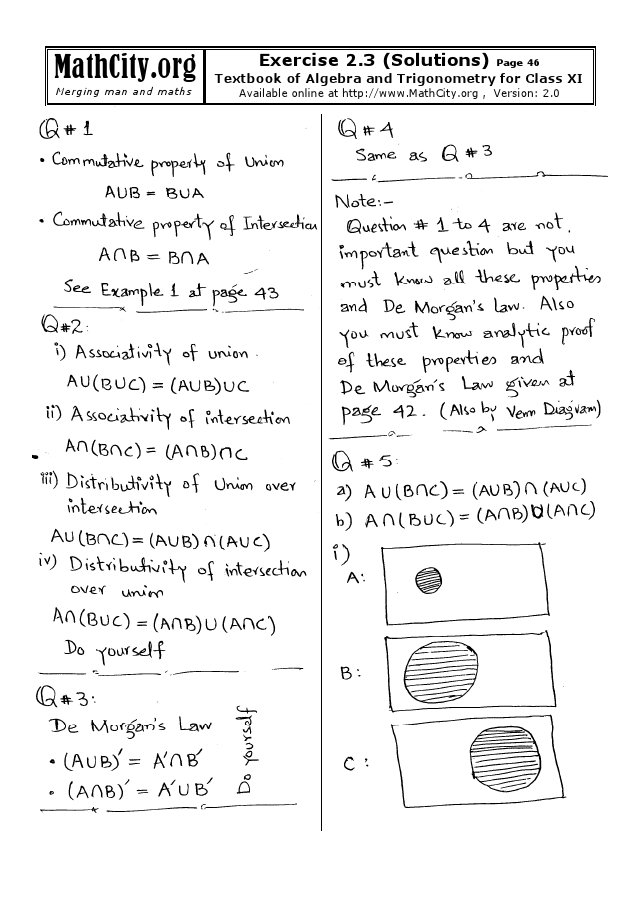 MathCity.org
Merging man and maths
Exercise 2.3 (Solutions) Page 46
Textbook of Algebra and Trigonometry for Class XI
Available online at http://www.MathCity.org , Version: 2.0
Q # 1
• Commutative property of Union
A∪B = B∪A
• Commutative property of Intersection
A∩B = B∩A
See Example 1 at page 43
Q#2:
i) Associativity of union.
A∪(B∪C) = (A∪B)∪C
ii) Associativity of intersection
A∩(B∩C) = (A∩B)∩C
iii) Distributivity of Union over
intersection
A∪(B∩C) = (A∪B)∩(A∪C)
iv) Distributivity of intersection
over union
A∩(B∪C) = (A∩B)∪(A∩C)
Do yourself
Q #3:
De Morgan's Law
• (A∪B)′ = A′∩B′
• (A∩B)′ = A′∪B′
Do yourself
Q # 4
Same as Q # 3
Note:-
Question # 1 to 4 are not
important question but you
must know all these properties
and De Morgan's law. Also
you must know analytic proof
of these properties and
De Morgan's Law given at
page 42. (Also by Venn Diagram)
Q # 5:
a) A∪(B∩C) = (A∪B)∩(A∪C)
b) A∩(B∪C) = (A∩B)∪(A∩C)
i)
A:
B:
C: